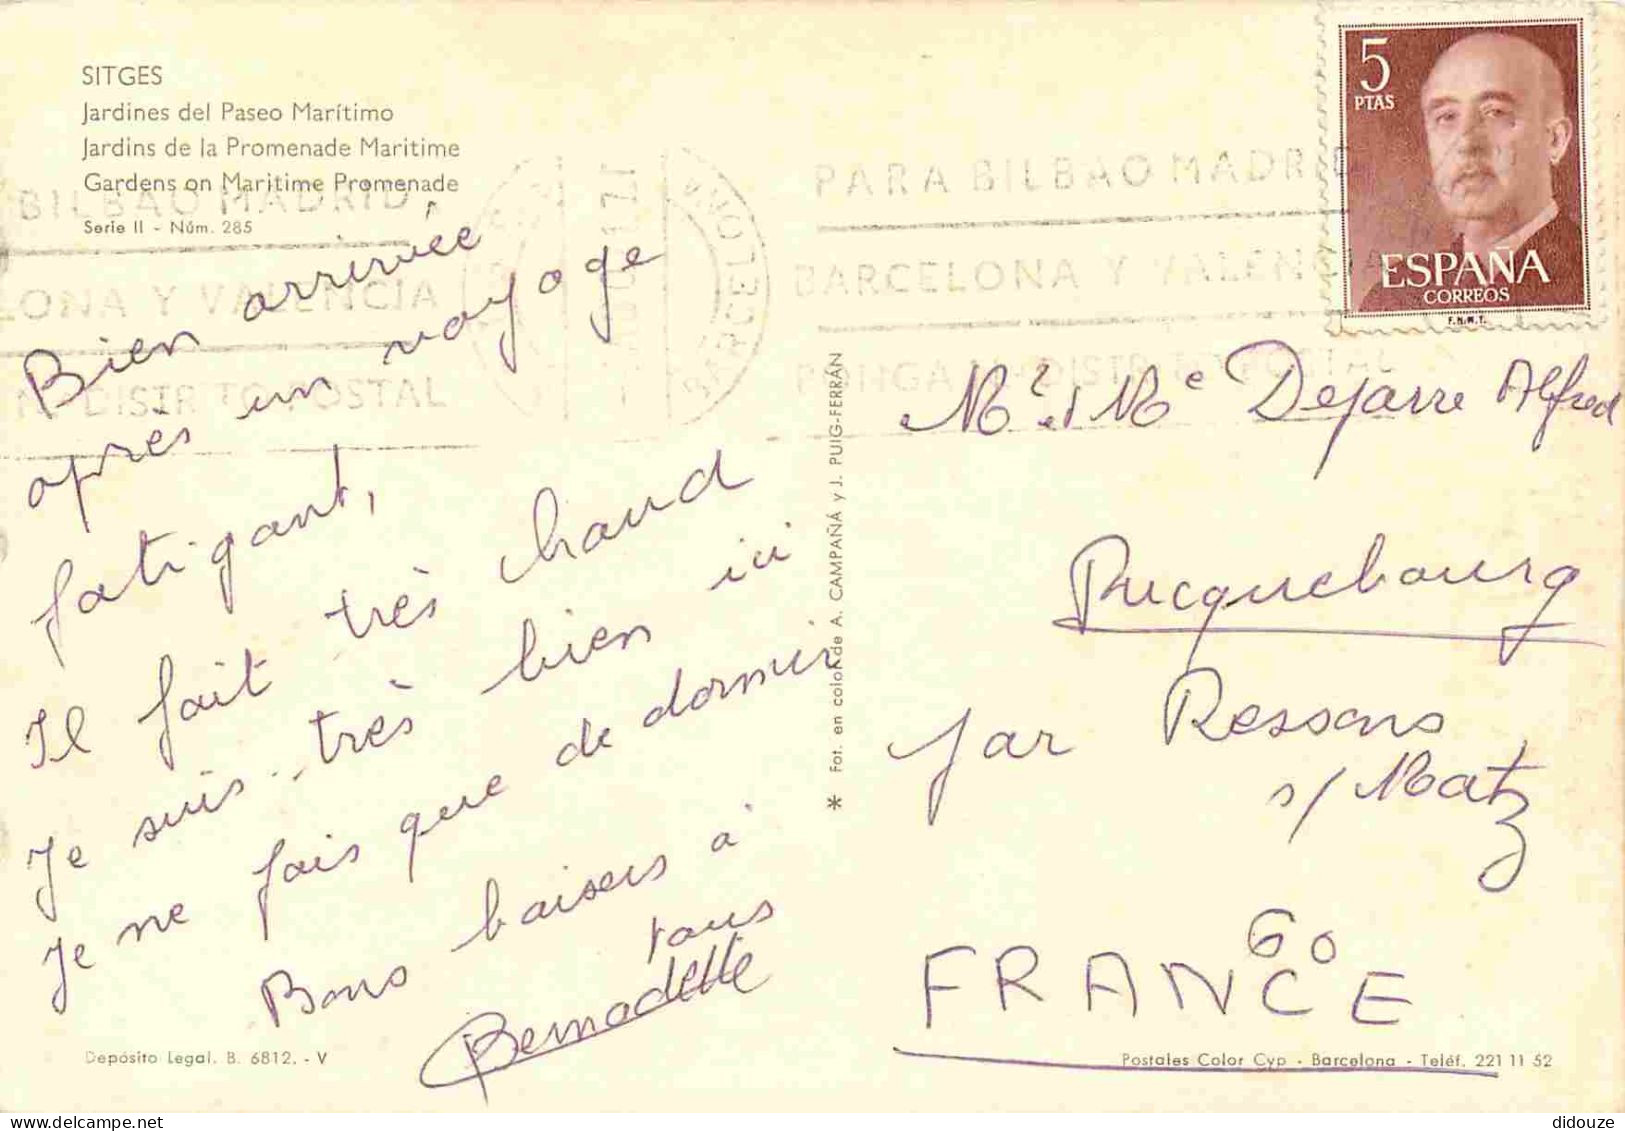 SITGES
Jardines del Paseo Marítimo
Jardins de la Promenade Maritime
Gardens on Maritime Promenade
Serie II - Núm. 285
BILBAO MADRID
LONA Y VALENCIA
Nº DISTRITO POSTAL
Bien arrivée
après un voyage
fatigant,
Il fait très chaud
Je suis très bien ici
Je ne fais que de dormir
Bons baisers à
tous
Bernadette
Depósito Legal. B. 6812. - V
* Fot. en color de A. CAMPAÑÁ y J. PUIG-FERRÁN
BARCELONA
PARA BILBAO MADRID
BARCELONA Y VALENCIA
PONGA Nº DISTRITO POSTAL
5
PTAS
ESPAÑA
CORREOS
F.N.M.T.
Mr et Me Dejarre Alfred
Ricquebourg
par Ressons
s/ Matz
60
FRANCE
Postales Color Cyp - Barcelona - Teléf. 221 11 52
didouze